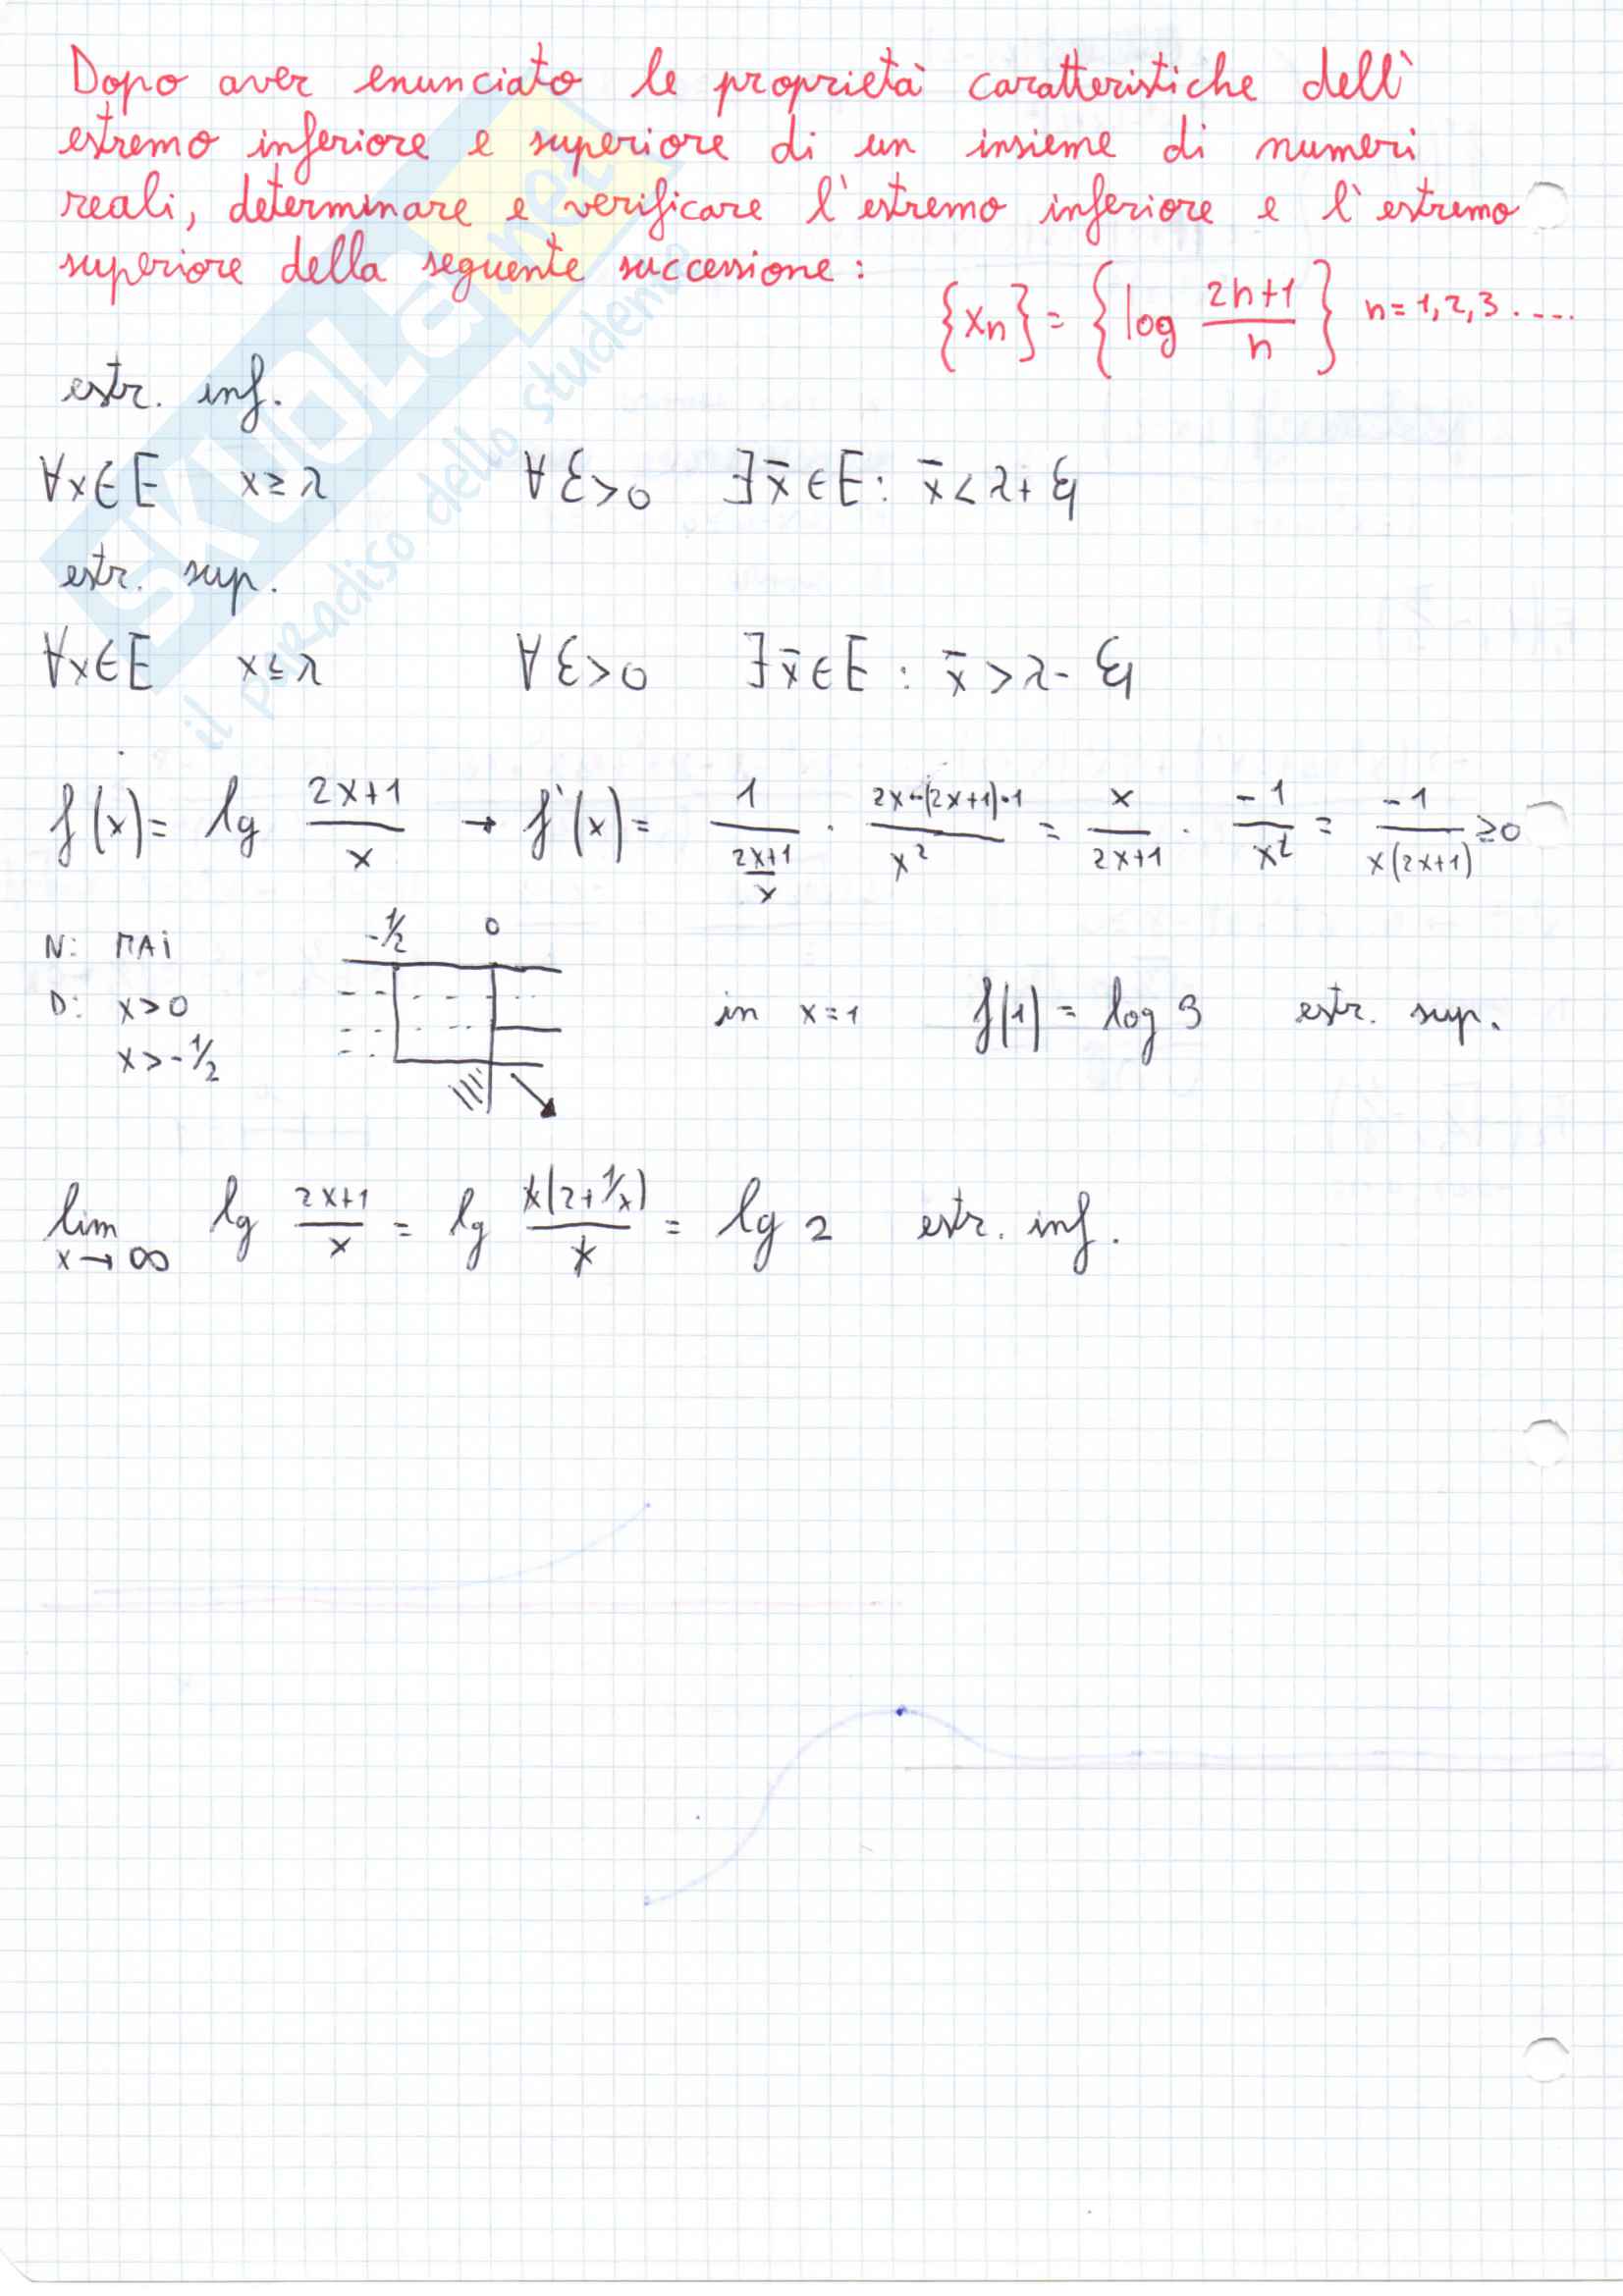 Dopo aver enunciato le proprietà caratteristiche dell'
estremo inferiore e superiore di un insieme di numeri
reali, determinare e verificare l'estremo inferiore e l'estremo
superiore della seguente successione:
{xn} = {log (2n+1)/n} n = 1, 2, 3 .....
estr. inf.
∀x∈E x ≥ λ ∀ε>0 ∃x̄∈E: x̄ < λ + ε
estr. sup.
∀x∈E x ≤ λ ∀ε>0 ∃x̄∈E: x̄ > λ - ε
f(x) = lg (2x+1)/x → f'(x) = 1/((2x+1)/x) · (2x-(2x+1)·1)/x² = x/(2x+1) · -1/x² = -1/(x(2x+1)) ≥ 0
N: MAI
D: x>0
x>-1/2
-1/2 0
in x=1 f(1) = log 3 estr. sup.
lim x→∞ lg (2x+1)/x = lg x(2+1/x)/x = lg 2 estr. inf.
SKUOLA.net
il paradiso dello studente